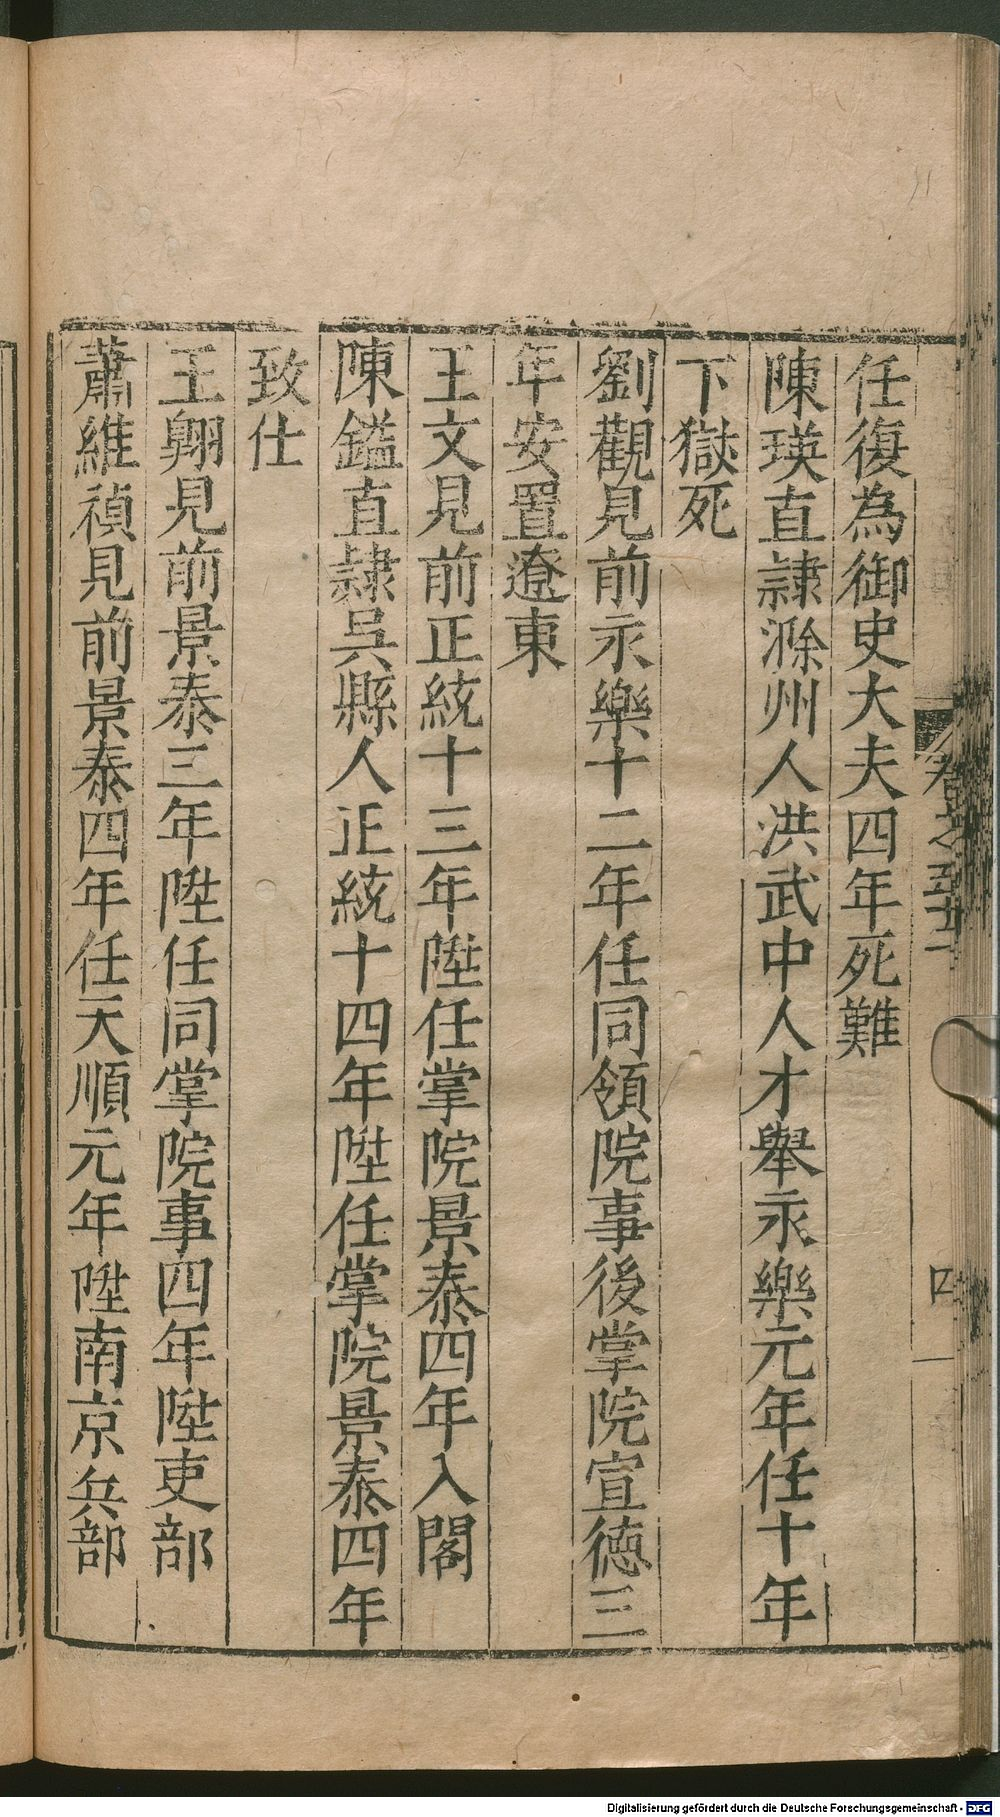 任復為御史大夫四年死難
陳瑛直隷滁州人洪武中人才舉永樂元年任十年
下獄死
劉觀見前永樂十二年任同領院事後掌院宣德三
年安置遼東
王文見前正統十三年陞任掌院景泰四年入閣
陳鎰直隷吳縣人正統十四年陞任掌院景泰四年
致仕
王翱見前景泰三年陞任同掌院事四年陞吏部
蕭維禎見前景泰四年任天順元年陞南京兵部
卷之五十
四
Digitalisierung gefördert durch die Deutsche Forschungsgemeinschaft - DFG